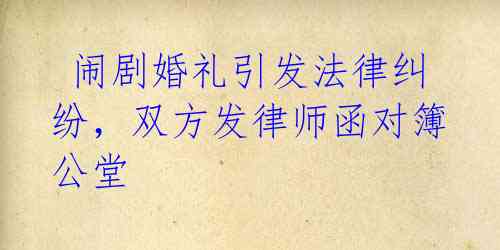 闹剧婚礼引发法律纠
纷，双方发律师函对簿
公堂